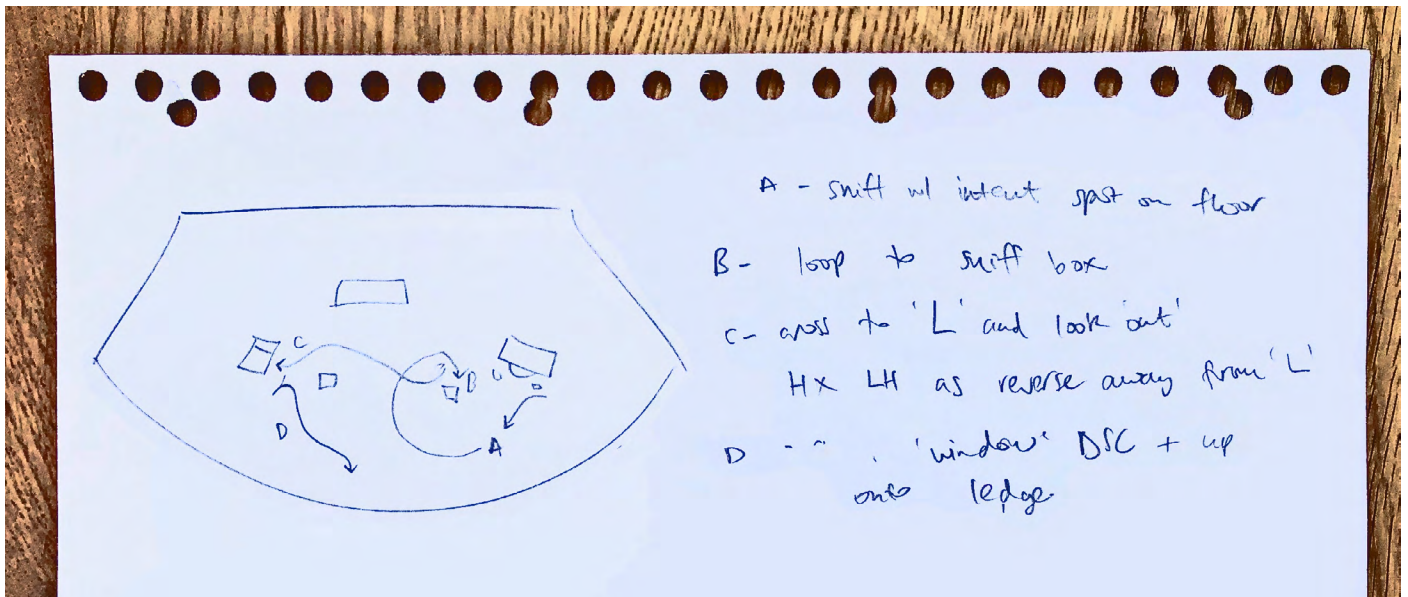 A - sniff w/ intent spot on floor
B - loop to sniff box
C - cross to 'L' and look 'out'
HX LH as reverse away from 'L'
D - " . 'window' DSC + up
onto ledge
C
B
D
A